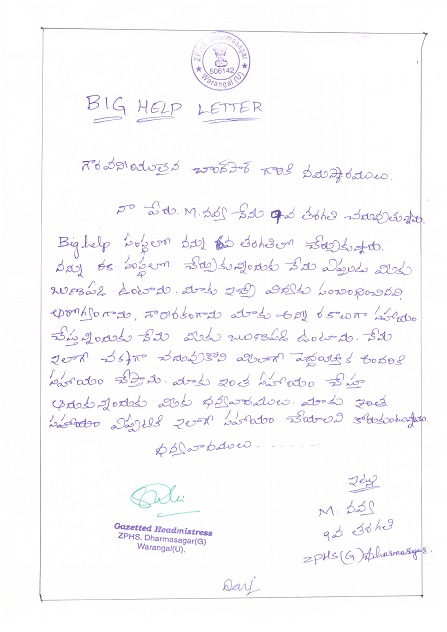 ZPHS Dharmasagar
506142
Warangal(U)
BIG HELP LETTER
గౌరవనీయులైన చాంద్‌పాష గారికి నమస్కారములు.
నా పేరు. M. నవ్య నేను 9వ తరగతి చదువుతున్నాను.
Big help సంస్థలో నన్ను 6వ తరగతిలో చేర్చుకున్నారు.
నన్ను ఈ సంస్థలో చేర్చుకున్నందుకు నేను ఎప్పుడు మీకు
ఋణపడి ఉంటాను. మాకు విద్యకు సంబంధించినవి,
ఆరోగ్యంగాను, మాకు అన్ని రకాలుగా సహాయం
చేస్తున్నందుకు నేను మీకు ఋణపడి ఉంటాను. నేను
ఇలాగే చక్కగా చదువుకొని మీలాగే అందరికి
సహాయం చేస్తాను. మాకు ఇంత సహాయం చేస్తూ
ఆదుకున్నందుకు మీకు ధన్యవాదములు. మాకు ఇంత
సహాయం ఎప్పటికి ఇలాగే సహాయం చేయాలని కోరుకుంటున్నాను.
ధన్యవాదములు - - - - - - -
ఇట్లు
M. నవ్య
9వ తరగతి
ZPHS (G) Dharmasagar
Gazetted Headmistress
ZPHS. Dharmasagar(G)
Warangal(U).